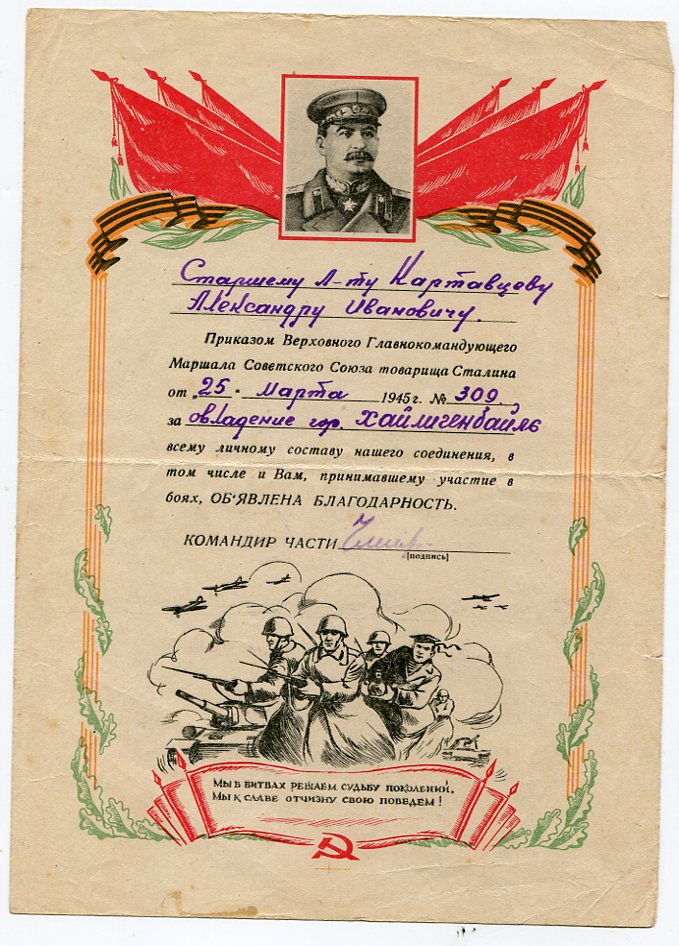 Старшему Л-ту Картавцеву
Александру Ивановичу.
Приказом Верховного Главнокомандующего
Маршала Советского Союза товарища Сталина
от „25“ марта 1945 г. № 309
за овладение гор. Хайлигенбайль
всему личному составу нашего соединения, в
том числе и Вам, принимавшему участие в
боях, ОБ'ЯВЛЕНА БЛАГОДАРНОСТЬ.
КОМАНДИР ЧАСТИ
[подпись]
Мы в битвах решаем судьбу поколений,
Мы к славе отчизну свою поведем!